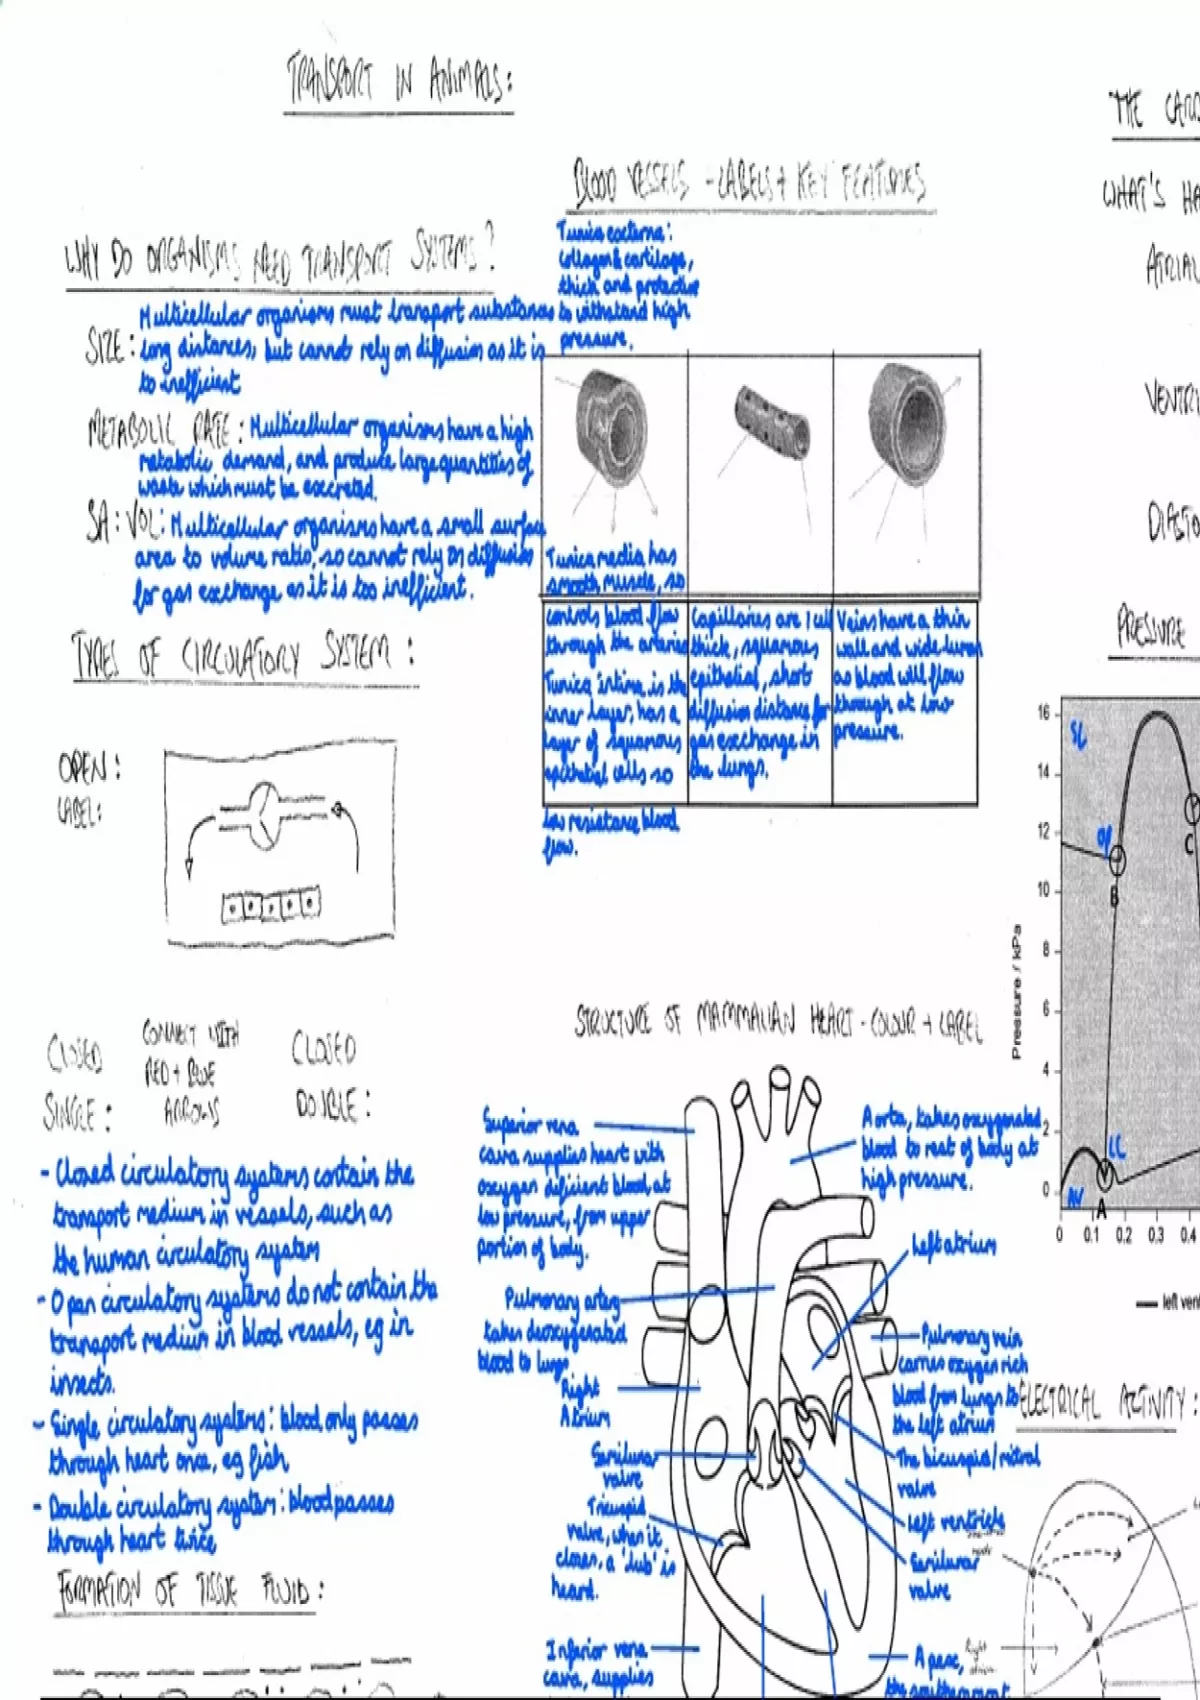 TRANSPORT IN ANIMALS:
WHY DO ORGANISMS NEED TRANSPORT SYSTEMS?
SIZE: Multicellular organisms must transport substances
long distances, but cannot rely on diffusion as it is
to inefficient
METABOLIC RATE: Multicellular organisms have a high
metabolic demand, and produce large quantities of
waste which must be excreted.
SA:VOL: Multicellular organisms have a small surface
area to volume ratio, so cannot rely on diffusion
for gas exchange as it is too inefficient.
TYPES OF CIRCULATORY SYSTEM:
OPEN:
LABEL:
CLOSED
SINGLE:
CONNECT WITH
RED + BLUE
ARROWS
CLOSED
DOUBLE:
- Closed circulatory systems contain the
transport medium in vessels, such as
the human circulatory system
- Open circulatory systems do not contain the
transport medium in blood vessels, eg in
insects.
- Single circulatory systems: blood only passes
through heart once, eg fish
- Double circulatory system: blood passes
through heart twice
FORMATION OF TISSUE FLUID:
BLOOD VESSELS - LABELS + KEY FEATURES
Tunica externa:
collagen & cartilage,
thick and protective
to withstand high
pressure.
Tunica media has
smooth muscle, so
controls blood flow
through the arteries
Tunica intima is the
inner layer, has a
layer of squamous
epithelial cells so
low resistance blood
flow.
Capillaries are 1 cell
thick, squamous
epithelial, short
diffusion distance for
gas exchange in
the lungs.
Veins have a thin
wall and wide lumen
as blood will flow
through at low
pressure.
STRUCTURE OF MAMMALIAN HEART - COLOUR + LABEL
Superior vena
cava supplies heart with
oxygen deficient blood at
low pressure, from upper
portion of body.
Pulmonary artery
takes deoxygenated
blood to lungs
Right
Atrium
Semilunar
valve
Tricuspid
valve, when it
closes, a 'lub' is
heard.
Inferior vena
cava, supplies
Aorta, takes oxygenated
blood to rest of body at
high pressure.
Left atrium
Pulmonary vein
carries oxygen rich
blood from lungs to
the left atrium
The bicuspid/mitral
valve
Left ventricle
Semilunar
valve
Apex,
THE CARD
WHAT'S HA
ATRIAL
VENTRI
DIASTO
PRESSURE
Pressure / kPa
16
14
12
10
8
6
4
2
0
SL
B
C
AV
A
0 0.1 0.2 0.3 0.4
left vent
ELECTRICAL ACTIVITY:
node
Right
atrium